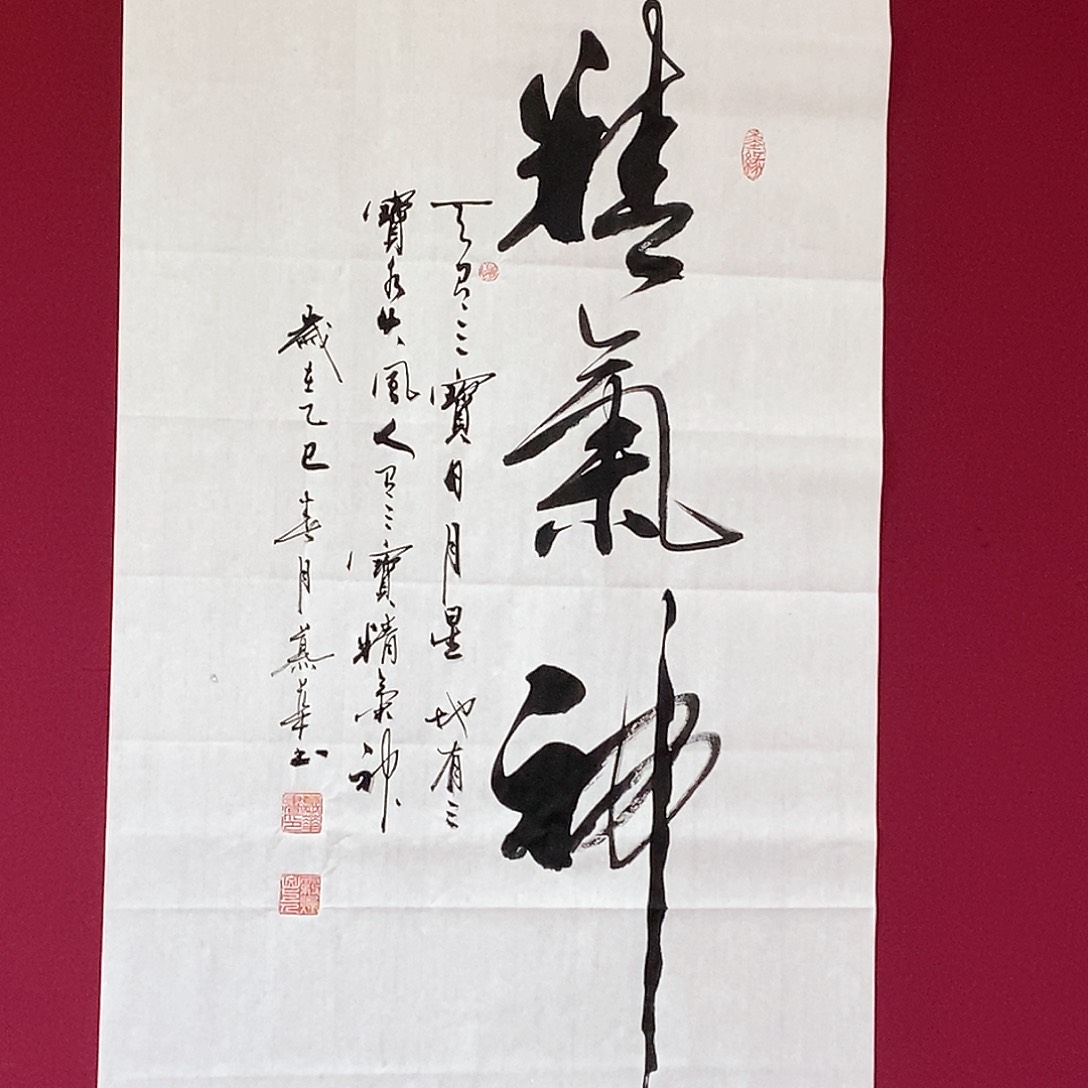 精氣神
天有三寶日月星 地有三
寶水火風人有三寶精氣神
歲在乙巳春月慕華书